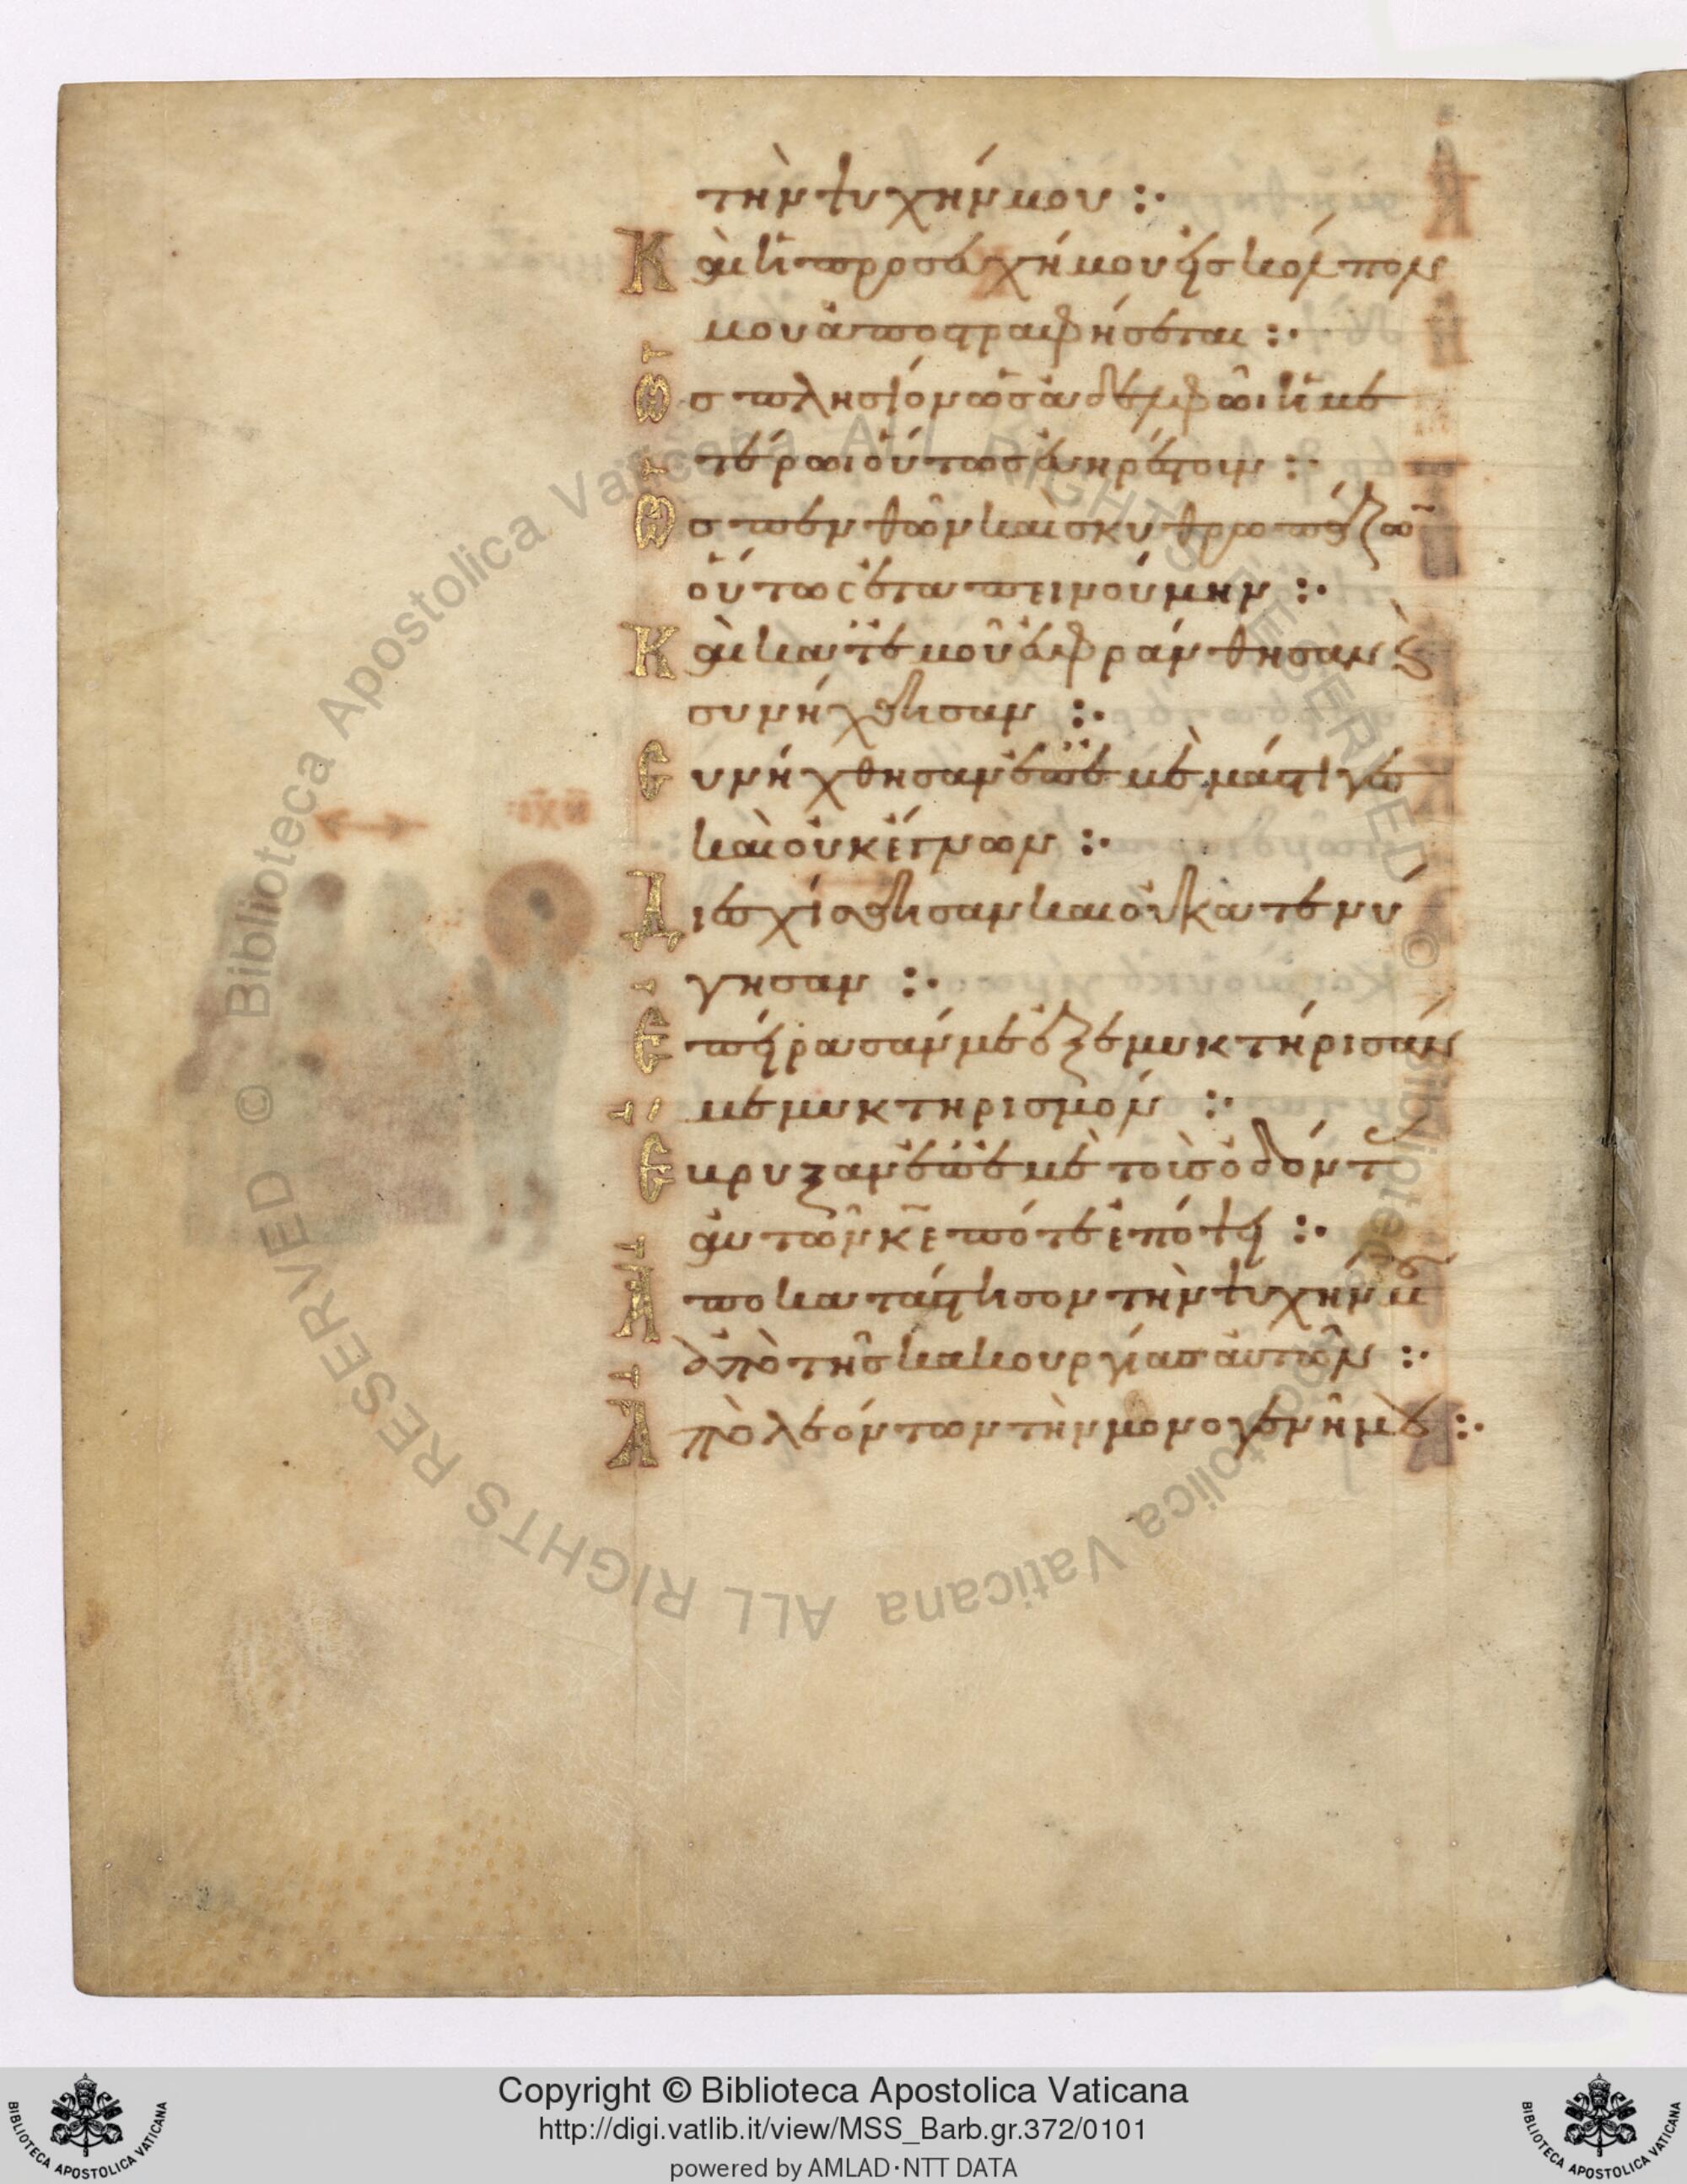 τὴν ψυχήν μου :·
Καὶ ἡ προσευχή μου εἰς κόλπον
μου ἀποστραφήσεται :·
Ὡς πλησίον ὡς ἀδελφῶι ἡμε
τέρωι οὕτως εὐηρέστουν :·
Ὡς πενθῶν καὶ σκυθρωπάζων
οὕτως ἐταπεινούμην :·
Καὶ κατ' ἐμοῦ εὐφράνθησαν καὶ
συνήχθησαν :·
Συνήχθησαν ἐπ' ἐμὲ μάστιγες
καὶ οὐκ ἔγνων :·
Διεσχίσθησαν καὶ οὐ κατενύ
γησαν :·
Ἐπείρασάν με ἐξεμυκτήρισάν
με μυκτηρισμόν :·
Ἔβρυξαν ἐπ' ἐμὲ τοὺς ὀδόντας
αὐτῶν κε πότε ἐπόψει :·
Ἀποκατάστησον τὴν ψυχήν μου
ἀπὸ τῆς κακουργίας αὐτῶν :·
Ἀπὸ λεόντων τὴν μονογενῆ μου :·
Copyright © Biblioteca Apostolica Vaticana
http://digi.vatlib.it/view/MSS_Barb.gr.372/0101
powered by AMLAD·NTT DATA
BIBLIOTECA APOSTOLICA VATICANA
BIBLIOTECA APOSTOLICA VATICANA
© Biblioteca Apostolica Vaticana ALL RIGHTS RESERVED
© Biblioteca Apostolica Vaticana ALL RIGHTS RESERVED